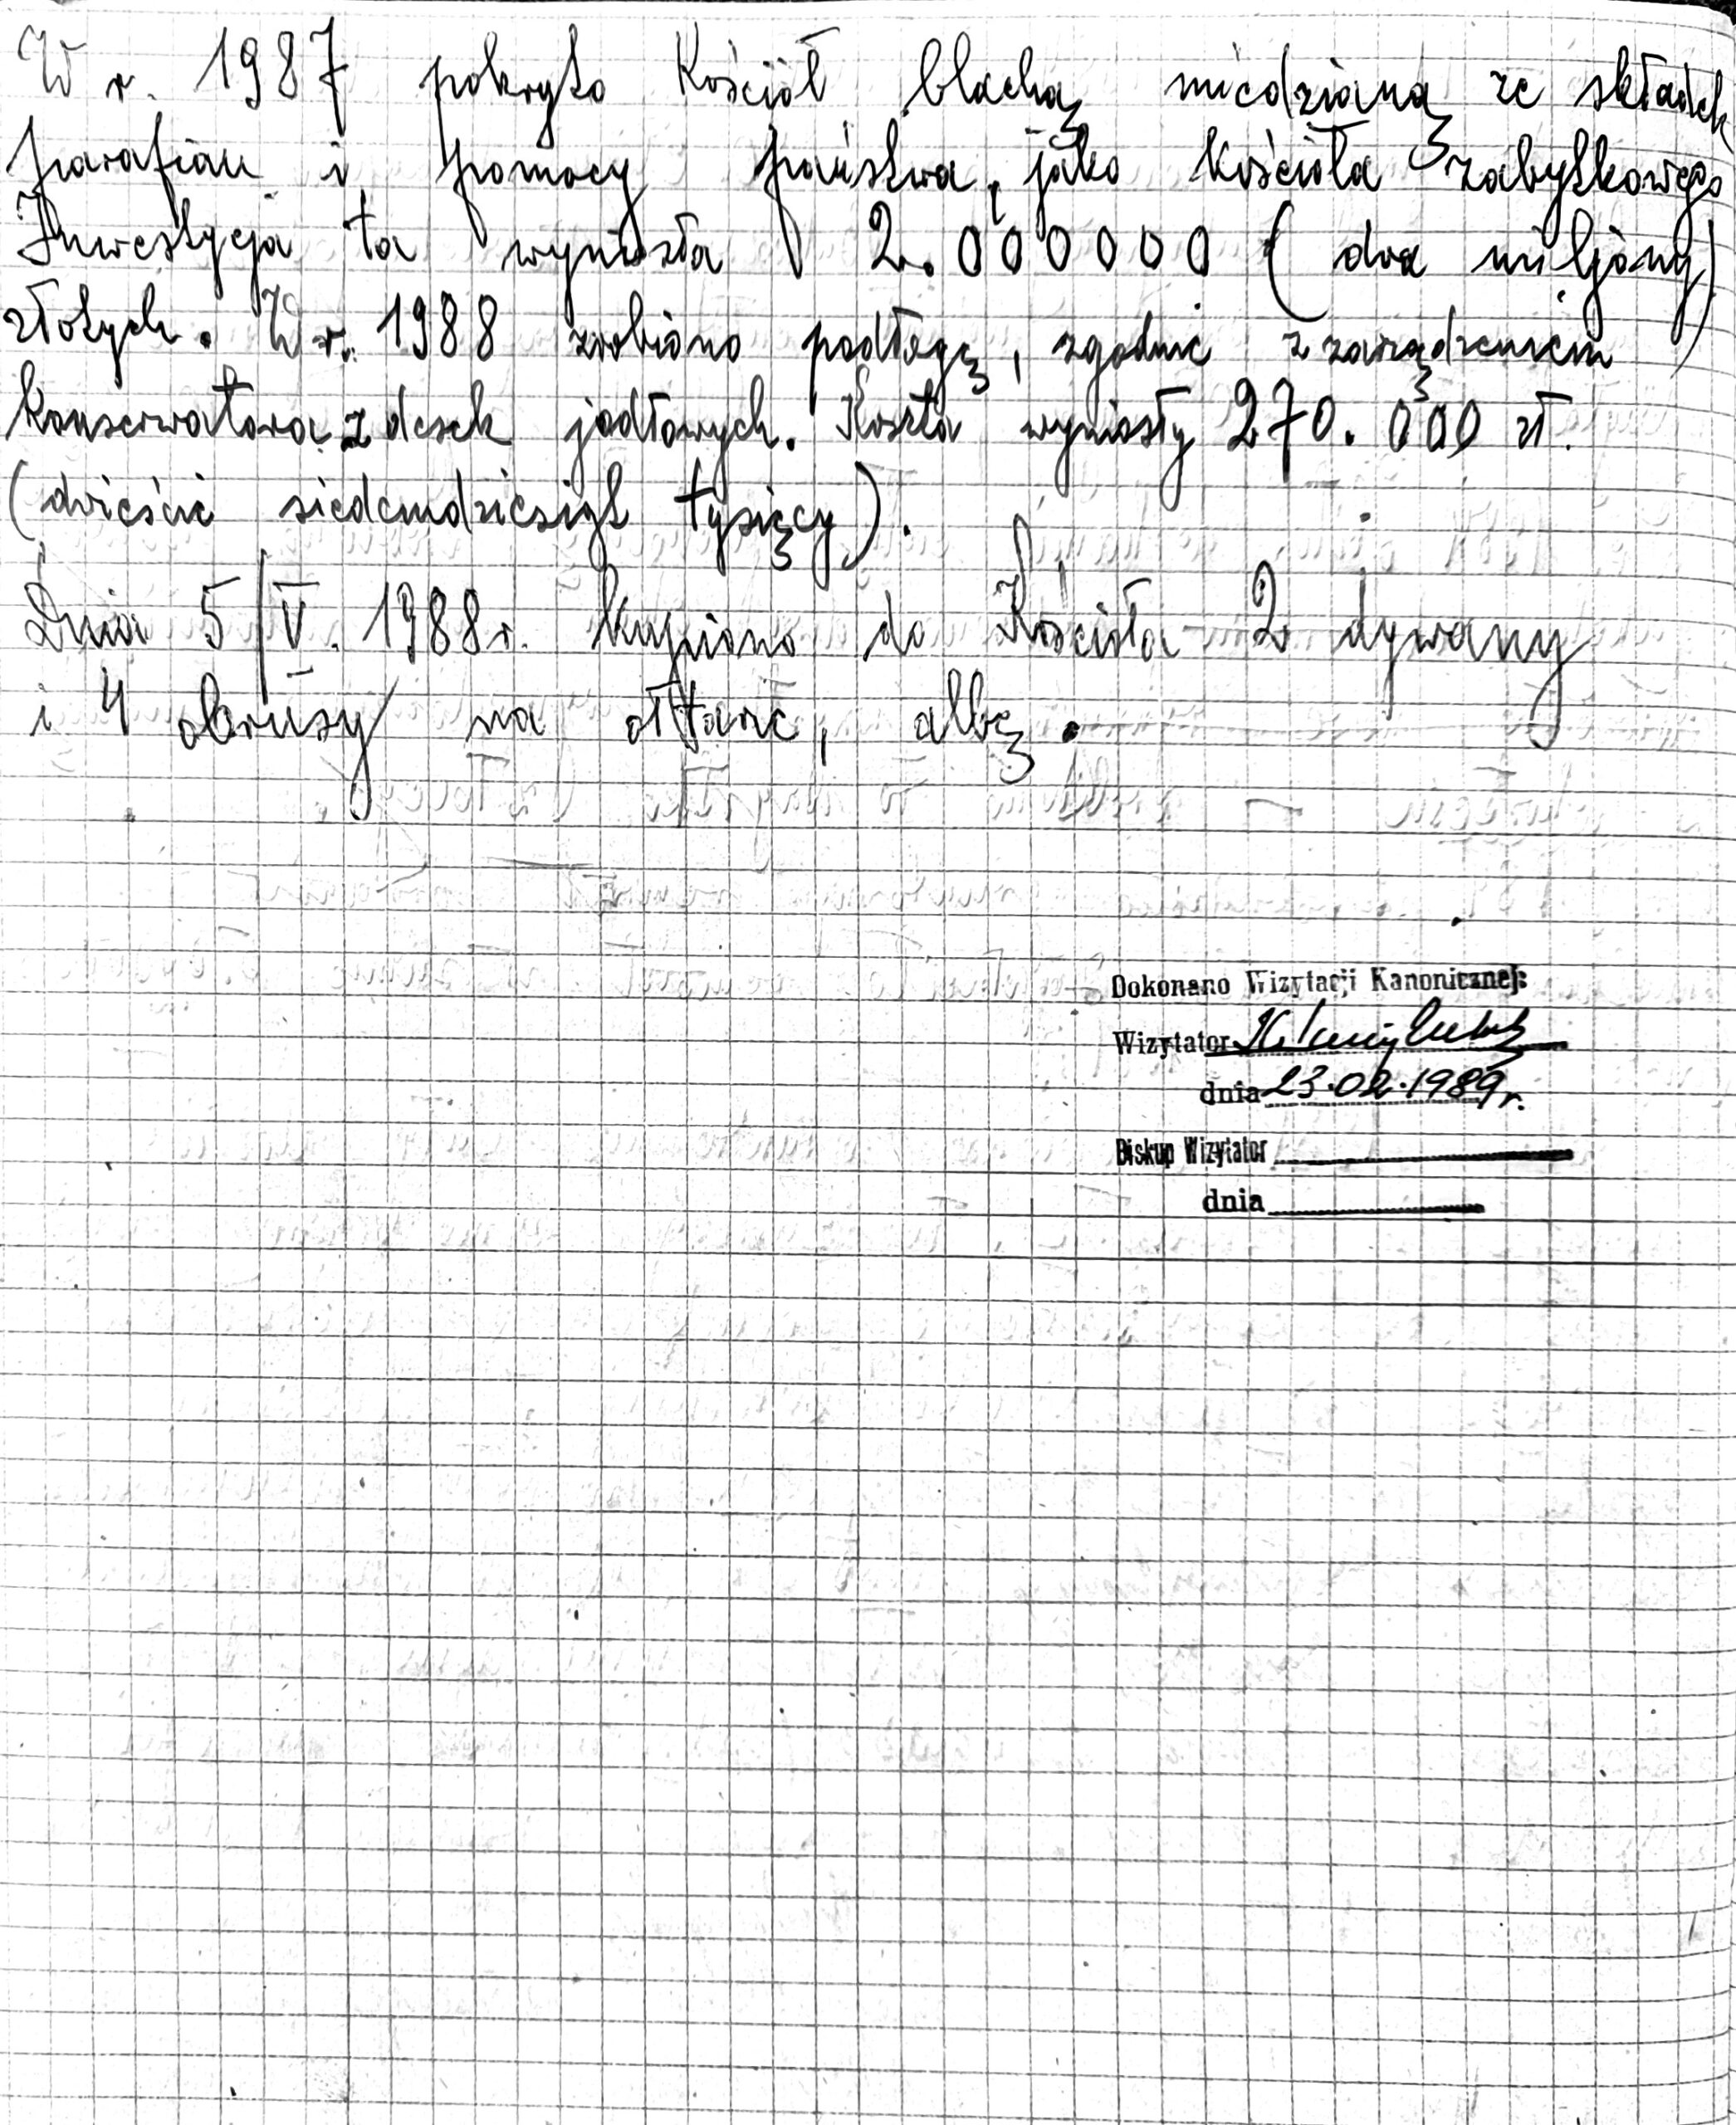 W r. 1987 pokryto Kościół blachą miedzianą ze składek
parafian i pomocy państwa, jako kościoła zabytkowego
Inwestycja ta wyniosła 2.000000 (dwa miljony)
złotych. W r. 1988 zrobiono podłogę, zgodnie z zarządzeniem
konserwatora z desek jodłowych. Koszta wyniosły 270.000 zł.
(dwieście siedemdziesiąt tysięcy).
Dnia 5/V. 1988r. kupiono do Kościoła 2 dywany
i 4 obrusy na ołtarze, albę.
Dokonano Wizytacji Kanonicznej:
Wizytator
dnia 23.02.1989r.
Biskup Wizytator
dnia